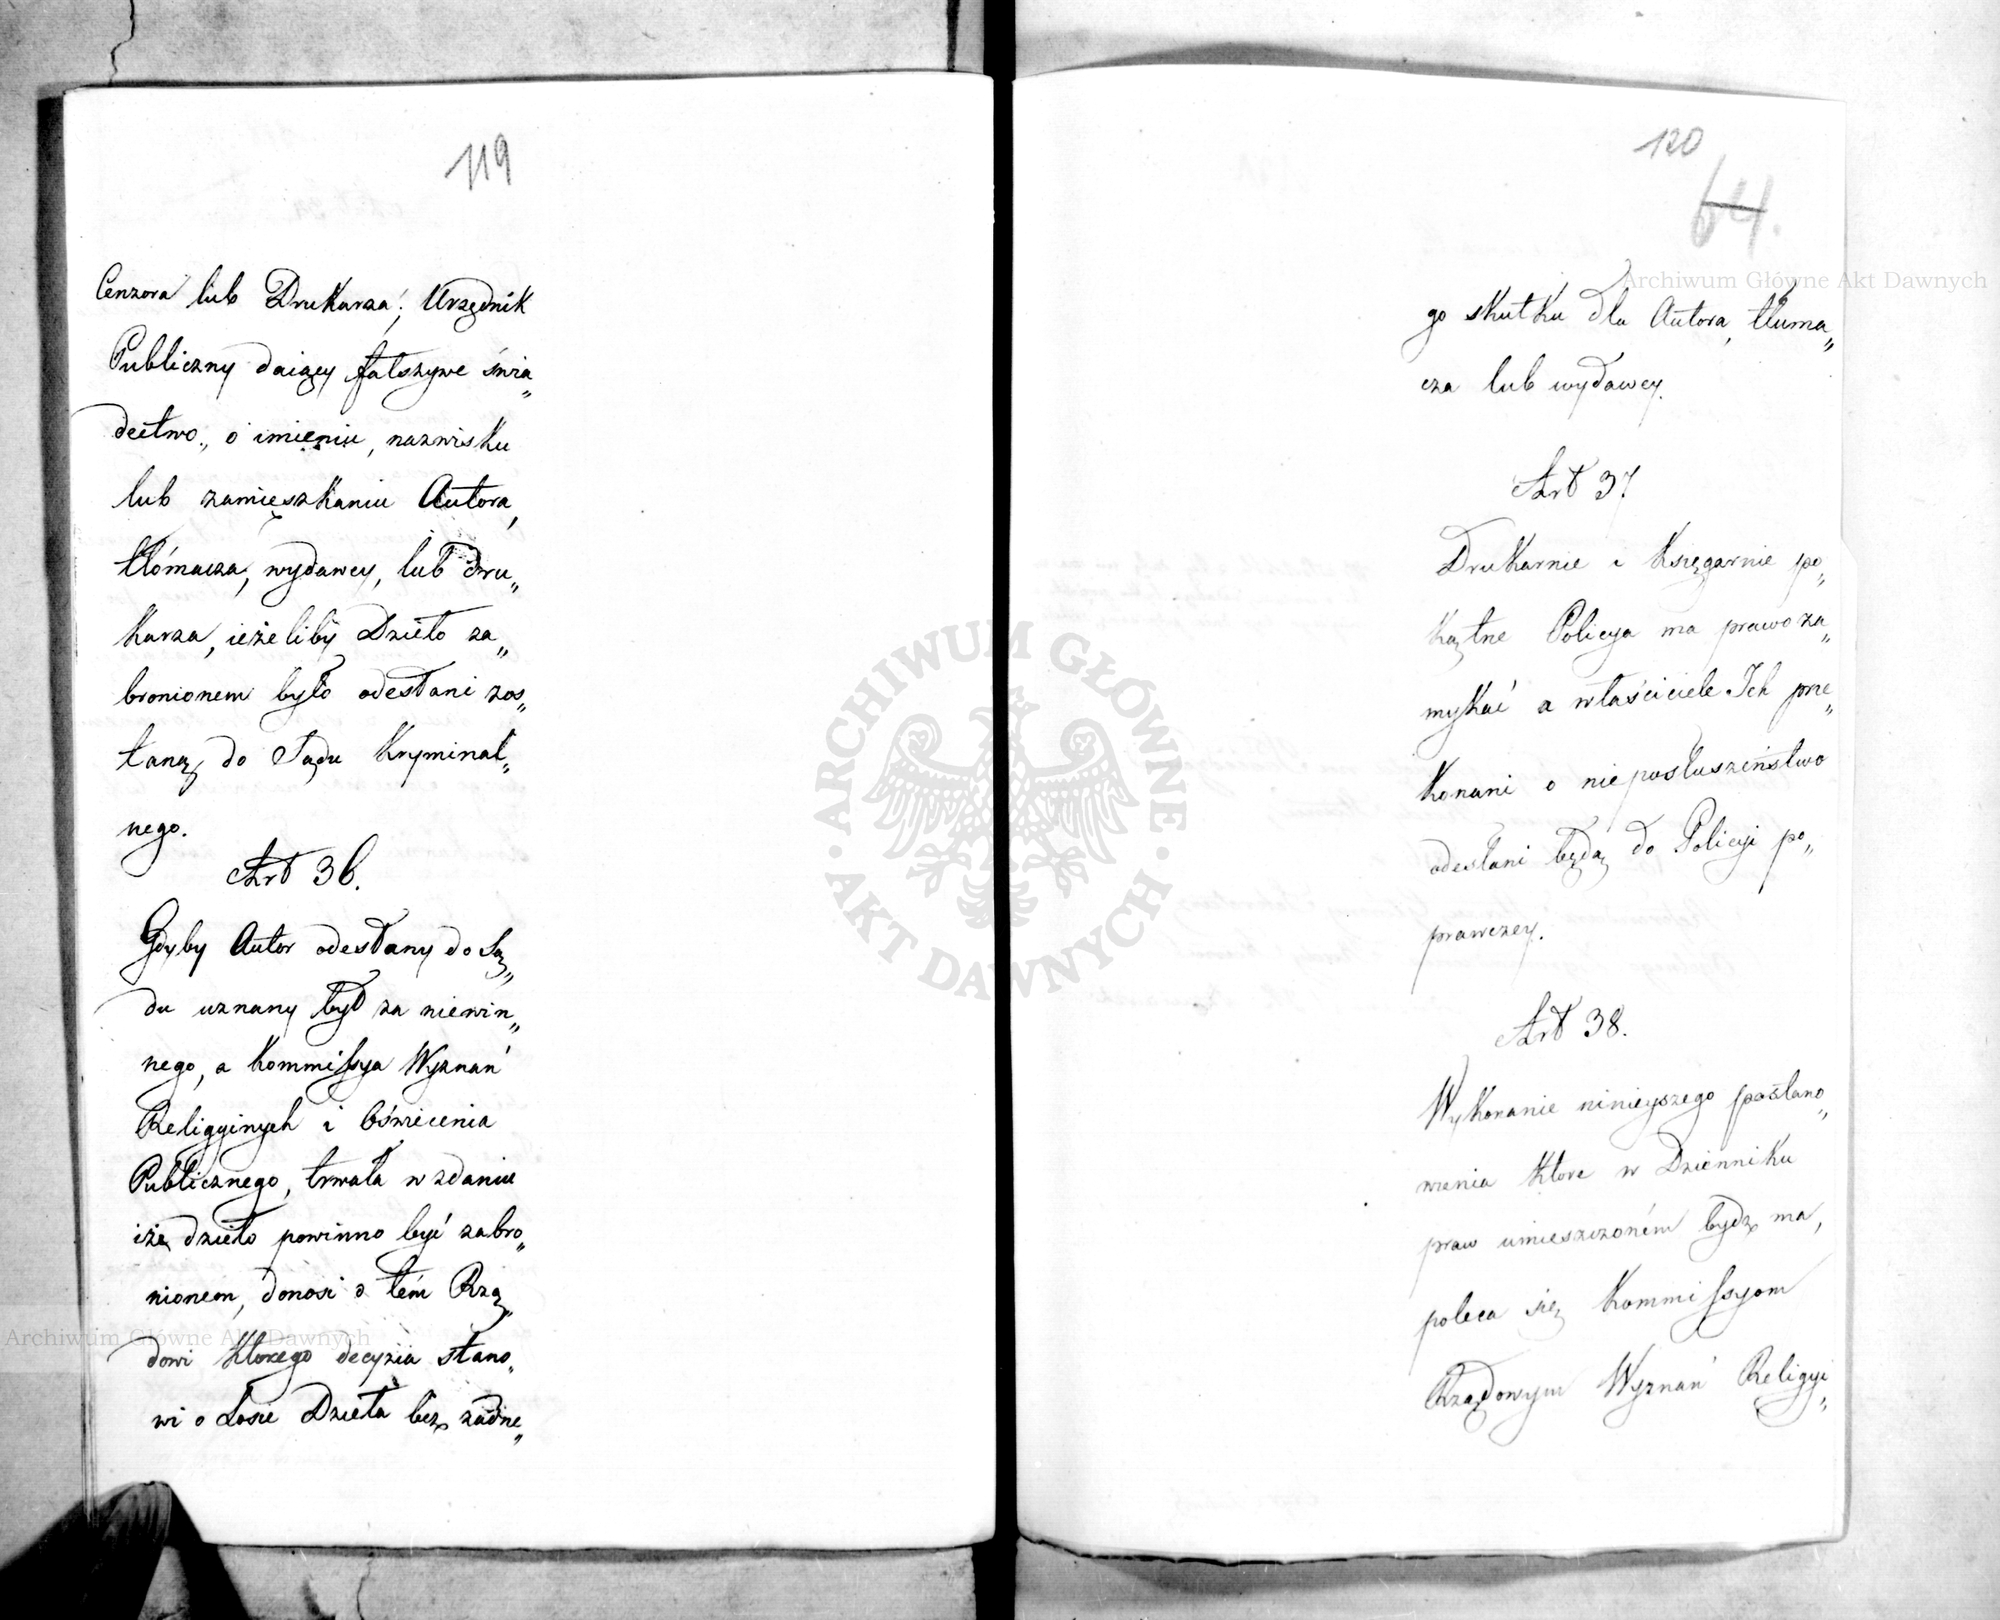 119
Cenzora lub Drukarza; Urzędnik
Publiczny daiący fałszywe świa„
dectwo, o imieniu, nazwisku
lub zamięszkaniu Autora,
tłómacza, wydawcy, lub dru„
karza, ieżeliby Dzieło za„
bronionem było odesłani zos„
taną do Sądu Kryminal„
nego.
Art 36.
Gdyby Autor odesłany do Są„
du uznany był za niewin„
nego, a Kommissya Wyznań
Religyinych i Oświecenia
Publicznego, trwała w zdaniu
iże dzieło powinno być zabro„
nionem, donosi o tém Rzą„
dowi którego decyzia stano„
wi o Losie Dzieła bez żadne„
120
64.
go skutku dla Autora, tłuma„
cza lub wydawcy.
Art 37
Drukarnie i Księgarnie po„
kątne Policya ma prawo za„
mykać a właściciele Ich prze„
konani o nieposłuszeństwo
odesłani będą do Policyi po„
prawczey.
Art 38.
Wykonanie ninieyszego postano„
wienia które w Dzienniku
praw umieszczoném bydź ma,
poleca się Kommissyom
Rządowym Wyznań Religyi„
Archiwum Główne Akt Dawnych
Archiwum Główne Akt Dawnych
ARCHIWUM GŁÓWNE · AKT DAWNYCH ·